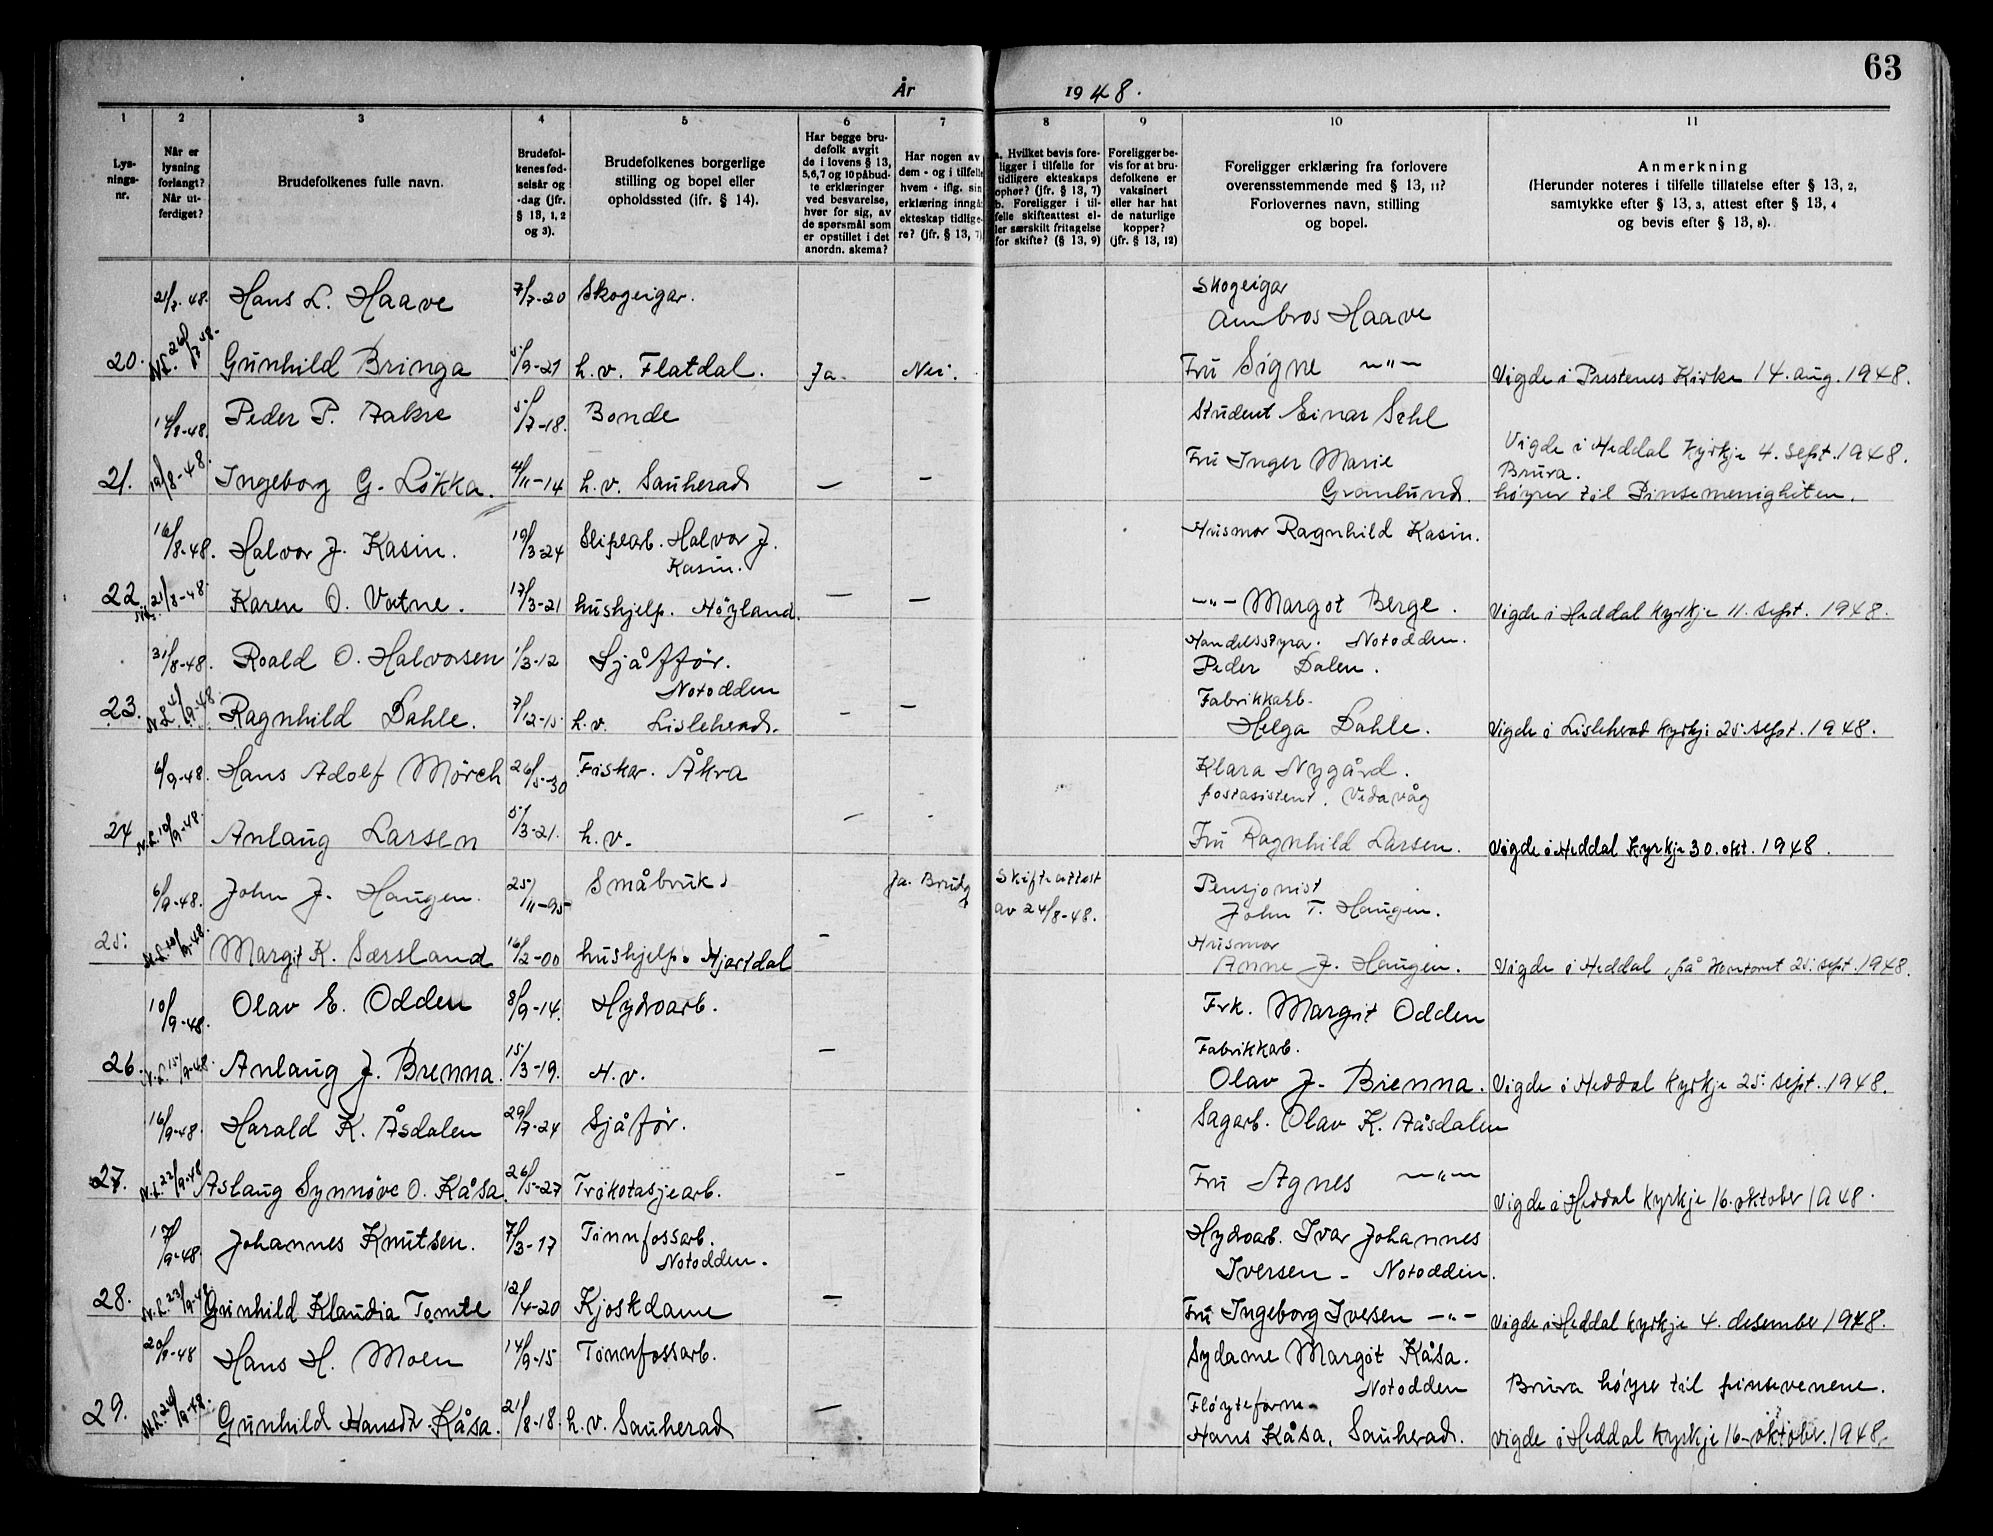 63
År 1948.
1 2 3 4 5 6 7 8 9 10 11
Lysningsnr.
Når er lysning forlangt? Når utferdiget?
Brudefolkenes fulle navn.
Brudefolkenes fødselsår og -dag (jfr. § 13, 1, 2 og 3).
Brudefolkenes borgerlige stilling og bopel eller opholdssted (jfr. § 14).
Har begge brudefolk avgit de i lovens § 13, 5, 6, 7 og 10 påbudte erklæringer ved besvarelse, hver for sig, av de spørsmål som er opstillet i det anordn. skema?
Har nogen av dem - og i tilfelle hvem - iflg. sin erklæring inngå ekteskap tidligere? (jfr. § 13, 7)
a. Hvilket bevis foreligger i tilfelle for tidligere ekteskaps ophør? (jfr. § 13, 7) b. Foreligger i tilfelle skifteattest eller særskilt fritagelse for skifte? (§ 13, 9)
Foreligger bevis for at brudefolkene er vaksinert eller har hat de naturlige kopper? (jfr. § 13, 12)
Foreligger erklæring fra forlovere overensstemmende med § 13, 11? Forlovernes navn, stilling og bopel.
Anmerkning (Herunder noteres i tilfelle tillatelse efter § 13, 2, samtykke efter § 13, 3, attest efter § 13, 4 og bevis efter § 13, 8).
21/7-48. Hans L. Haave 7/7-20 Skogeigar. Skogeigar
Ambros Haave
20. N.L. 26/7-48. Gunhild Bringa 5/9-21 h.v. Flatdal. Ja. Nei. Fru Signe -"- Vigde i Prestenes Kirke 14. aug. 1948.
14/8-48. Peder P. Aakre 5/7-18. Bonde Student Einar Sehl
Vigde i Heddal Kyrkje 4. sept. 1948.
Fru Inger Marie Brura.
21. 19/8-48. Ingeborg G. Løkka. 4/11-14 h.v. Sauherad — - Granlund. høyrer til Pinsemenigheten.
16/8-48. Halvor J. Kasin. 19/3-24 Slipearb. Halvor J. Husmor Ragnhild Kasin.
Kasin.
22. 21/8-48. Karen O. Vatne. 17/3-21 hushjelp. Høyland. — — -"- Margot Berge. Vigde i Heddal kyrkje 11. sept. 1948.
Handelsstyra. Notodden.
31/8-48. Roald O. Halvorsen 1/3-12 Sjåffør. Peder Dalen.
Notodden Fabrikkarb.
23. N.L. 4/9-48. Ragnhild Dahle. 7/12-15. h.v. Lisleherad. - — Helga Dahle. Vigde i Lisleherad kyrkje 25. sept. 1948.
6/9-48. Hans Adolf Mörch 26/5-30 Fiskar. Åkra Klara Nygård.
postasistent. Vedavåg
24 N.L. 10/9-48. Anlaug Larsen 5/3-21. h.v. — - Fru Ragnhild Larsen. Vigde i Heddal Kyrkje 30. okt. 1948.
6/9-48. John J. Haugen. 25/11-95 Småbruk. Ja. Brudg Skifteattest Pensjonist
av 24/8-48. John T. Haugen.
Husmor
25. N.L. 10/9-48. Margit K. Sørsland 16/2-00 hushjelp. Hjartdal - Anne J. Haugen. Vigde i Heddal, på Kontoret 25. sept. 1948.
10/9-48. Olav E. Odden 8/9-14. Hydroarb. Frk. Margit Odden
Fabrikkarb.
26. N.L. 15/9-48. Anlaug J. Brenna. 15/3-19. H.v. — Olav J. Brenna. Vigde i Heddal kyrkje 25. sept. 1948.
16/9-48 Harald K. Åsdalen 29/9-24 Sjåfør. Sagarb. Olav K. Aåsdalen
27. N.L. 22/9-48 Aslaug Synnøve O. Kåsa. 26/5-27 Trikotasjearb. - Fru Agnes -"- Vigde i Heddal kyrkje 16. oktober 1948.
17/9-48. Johannes Knutsen. 7/3-17 Tinnfossarb. Hydroarb. Ivar Johannes
Notodden. Iversen - Notodden.
28. N.L. 23/9-48 Gunhild Klaudia Tomte 12/4-20 Kjoskdame — Fru Ingeborg Iversen -"- Vigde i Heddal kyrkje 4. desember 1948.
20/9-48 Hans H. Moen 14/9-15 Tinnfossarb. Sydame Margit Kåsa.
Notodden Brura høyrer til pinsevenene.
Fløyteform.
29. N.L. 24/9-48. Gunhild Hansdtr. Kåsa. 21/8-18. h.v. Sauherad — Hans Kåsa, Sauherad. Vigde i Heddal kyrkje 16-oktober. 1948.